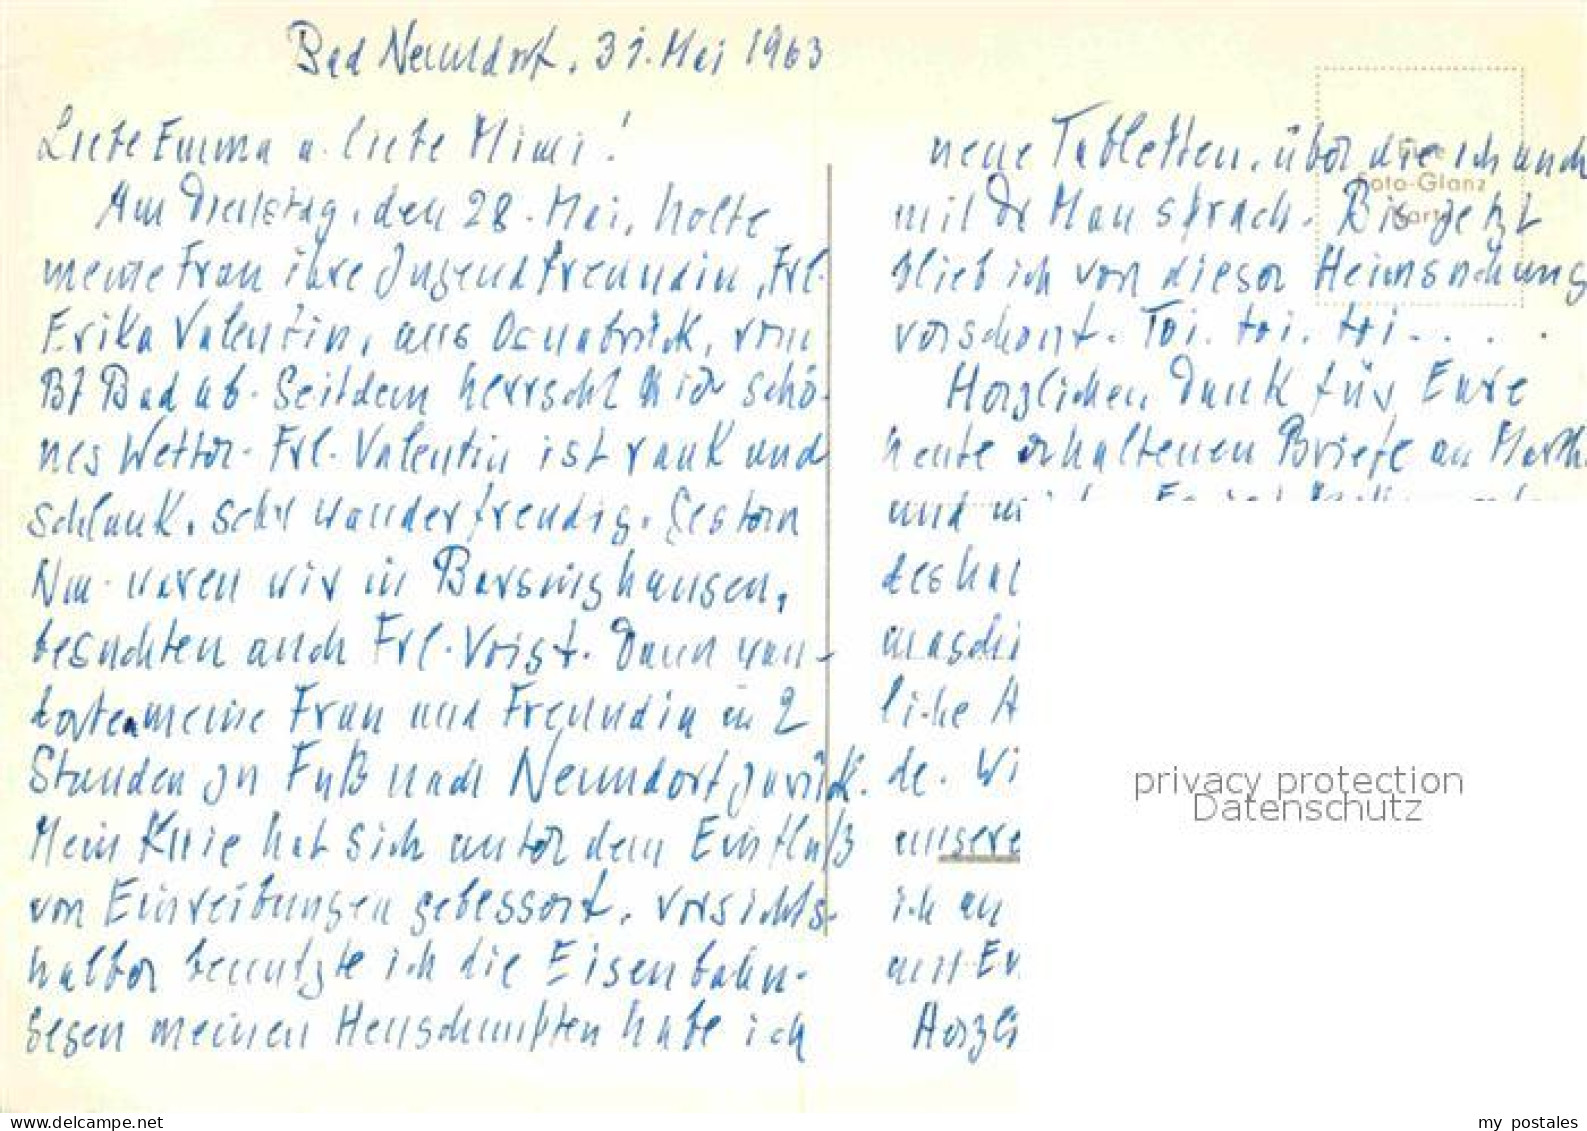 Bad Nenndorf, 31. Mai 1963
Liebe Emma u. liebe Mimi!
Am Dienstag, den 28. Mai, holte
meine Frau ihre Jugendfreundin, Frl.
Erika Valentin, aus Osnabrück, vom
Bf Bad ab. Seitdem herrscht hier schö-
nes Wetter. Frl. Valentin ist rank und
schlank, sehr wanderfreudig. Gestern
Nm. waren wir in Barsinghausen,
besuchten auch Frl. Voigt. Dann wan-
derten meine Frau und Freundin in 2
Stunden zu Fuß nach Nenndorf zurück.
Mein Knie hat sich unter dem Einfluß
von Einreibungen gebessert. Vorsichts-
halber benutzte ich die Eisenbahn.
Gegen meinen Heuschnupfen habe ich
neue Tabletten, über die ich auch
mit Dr Mau sprach. Bis jetzt
blieb ich von dieser Heimsuchung
verschont. Toi. toi. toi....
Herzlichen Dank für Eure
heute erhaltenen Briefe an Marth
und
deshal
maschi
liche H
de. Wi
unsere
ich an
mit Eu
Herzli
Foto-Glanz
Karte
privacy protection
Datenschutz
my postales